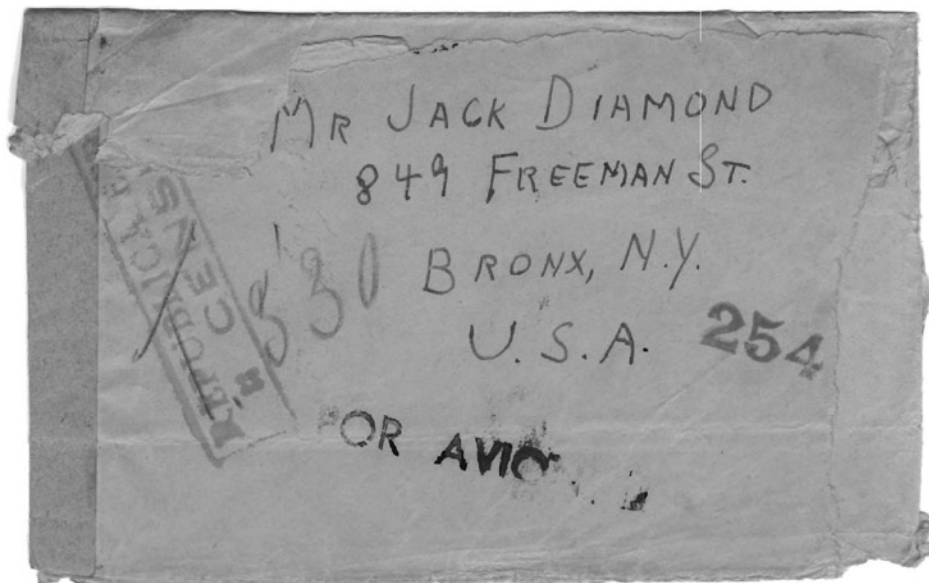 MR JACK DIAMOND
849 FREEMAN ST.
BRONX, N.Y.
U.S.A.
254
330
REPUBLICA
CENS
POR AVIO